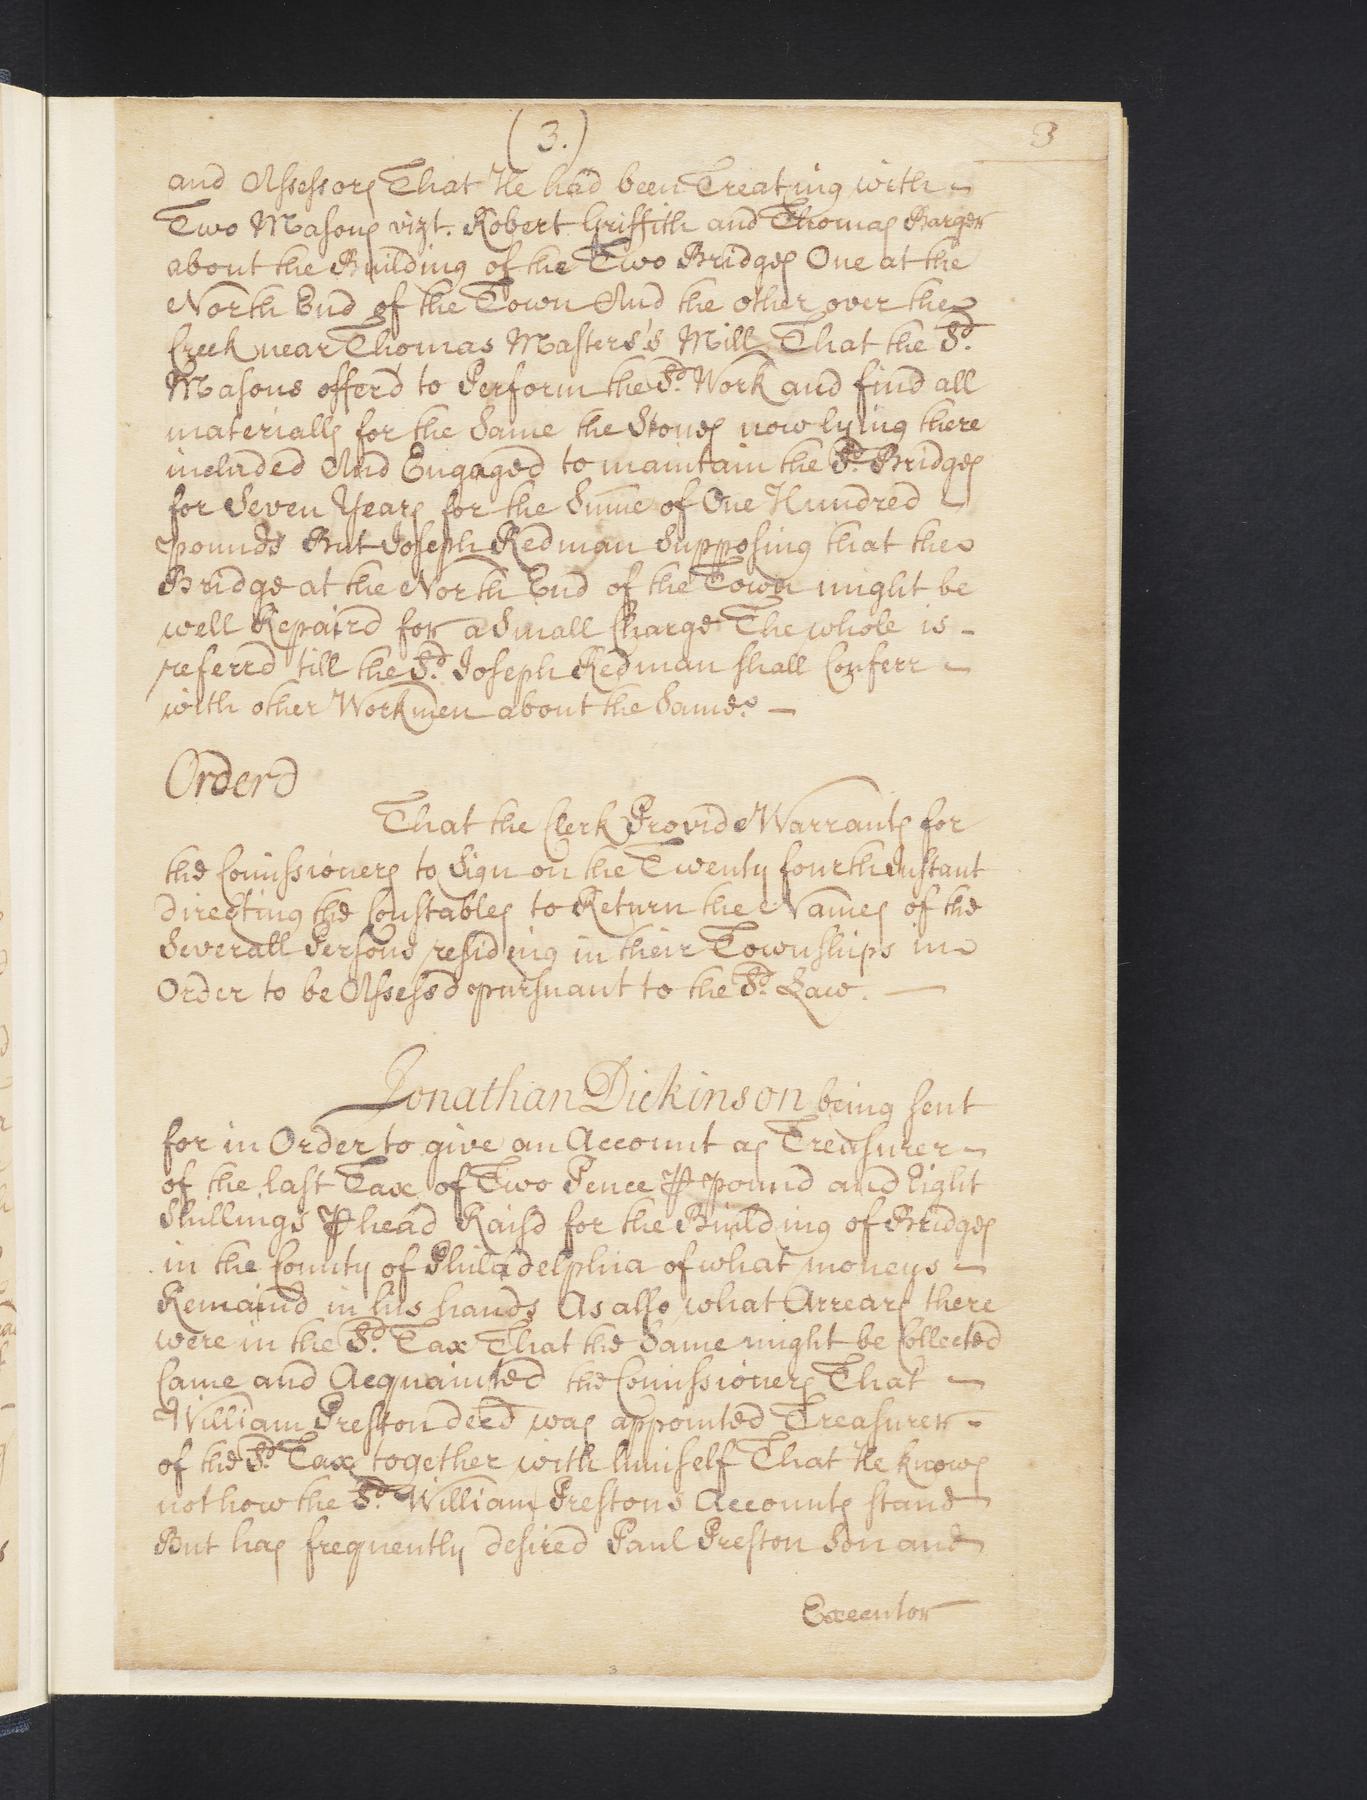 (3.)
3
and Assessors That He had been Treating with
Two Masons vizt. Robert Griffith and Thomas Barger
about the Building of the Two Bridges One at the
North End of the Town And the other over the
Creek near Thomas Masters's Mill That the Sd.
Masons offerd to Perform the Sd. Work and find all
materialls for the Same the Stones now lying there
included And Engaged to maintain the Sd. Bridges
for Seven Years for the Sume of One Hundred
pounds But Joseph Redman Supposing that the
Bridge at the North End of the Town might be
well Repaird for a Small Charge The whole is
referrd till the Sd. Joseph Redman shall Conferr
with other Workmen about the Same. —
Orderd
That the Clerk Provide Warrants for
the Comissioners to Sign on the Twenty fourth Instant
directing the Constables to Return the Names of the
Severall Persons residing in their Townships in
Order to be Assessd pursuant to the Sd. Law. —
Jonathan Dickinson being sent
for in Order to give an Account as Treasurer
of the last Tax of Two Pence ⅌ pound and Eight
Shillings ⅌ head Raisd for the Building of Bridges
in the County of Philadelphia of what moneys
Remaind in his hands As also what Arrears there
were in the Sd. Tax That the Same might be Collected
Came and Acquainted the Comissioners That
William Preston decd was appointed Treasurer
of the Sd. Tax together with himself That He knows
not how the Sd. William Prestons Accounts stand
But has frequently desired Paul Preston Son and
Executor
3